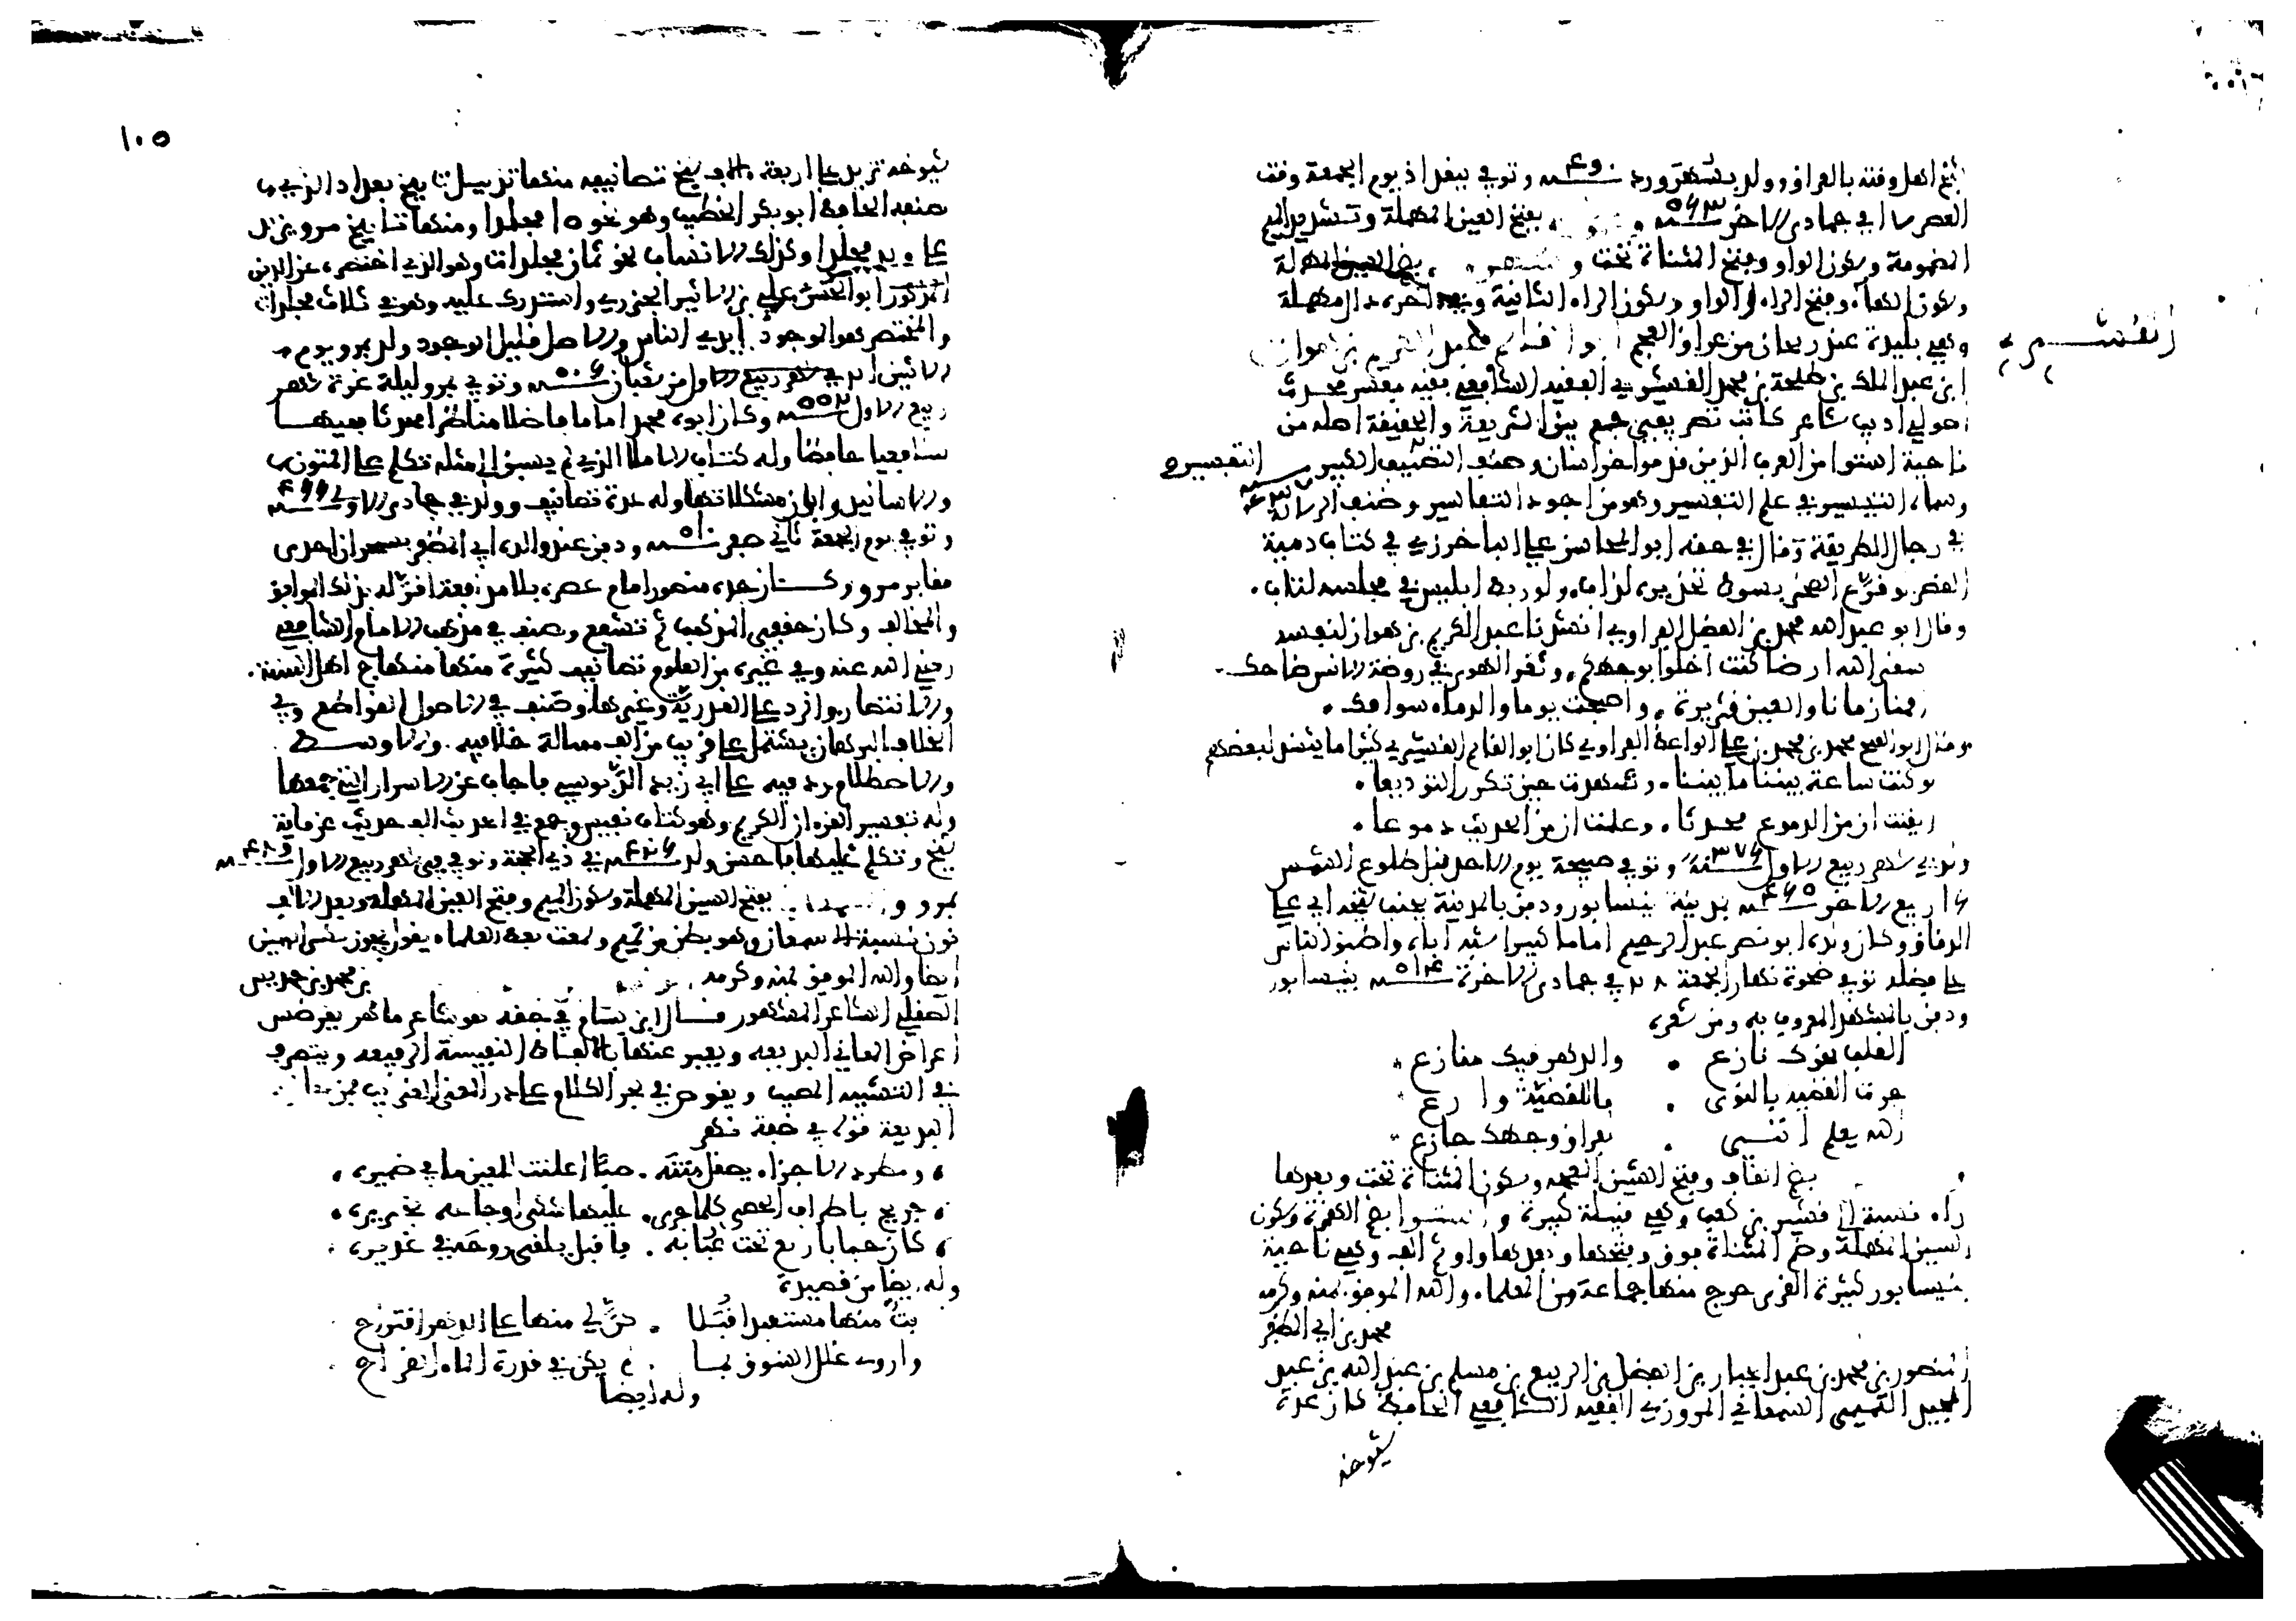 شيخ اهل وقته بالعراق وولد بسهرورد سنة ٤٩٠ وتوفي ببغداذ يوم الجمعة وقت
العصر ١٧ في جمادى الاخرة سنة ٥٦٣ بفتح العين المهملة وتشديد الميم
المضمومة وسكون الواو وفتح المثناة تحت و بضم السين المهملة
وسكون الهاء وفتح الراء والواو وسكون الراء الثانية وبعد اخره دال مهملة
وهي بليدة عند زنجان من عراق العجم ابو القاسم عبد الكريم بن هوازن
القشيري
ابن عبد الملك بن طلحة بن محمد القشيري الفقيه الشافعي فقيه مفسر محدث
اصولي اديب شاعر كاتب تصوفي جمع بين الشريعة والحقيقة اصله من
ناحية استوا من العرب الذين قدموا خراسان وصنف التصنيف الكبير التفسير
وسماه التيسير في علم التفسير وهو من اجود التفاسير وصنف الرسالة
في رجال الطريقة وقال في حقه ابو المحاسن علي الباخرزي في كتاب دمية
القصر لو قرع الصخر بسوط تحذيره لذاب ولو ربط ابليس في مجلسه لتاب .
وقال ابو عبد الله محمد بن الفضل الفراوي انشدنا عبد الكريم بن هوازن لنفسه
سقى الله ارضا كنت اخلوا بوجهكم . وثغر الهوى في روضة الانس ضاحك .
زمنا زمانا والعيون قريرة . واصبحت يوما والدماء سوافك .
وقال ابو الفتح محمد بن محمد بن علي الواعظ الفراوي كان ابو القاسم القشيري كثيرا ما ينشد لبعضهم
لو كنت ساعة بيننا ما بيننا . وشهدت حين تكرر التوديعا .
ايقنت ان من الدموع محدثا . وعلمت ان من الحديث دموعا .
ولد في شهر ربيع الاول سنة ٣٧٦ وتوفي صبيحة يوم الاحد قبل طلوع الشمس
١٦ ربيع الاخر سنة ٤٦٥ بمدينة نيسابور ودفن بالمدينة بجنب شيخه ابي علي
الدقاق وكان ولده ابو نصر عبد الرحيم اماما كبيرا اشبه اباه واطبق الناس
على فضله توفي ضحوة نهار الجمعة ٢٨ في جمادى الاخرة سنة ٥١٤ بنيسابور
ودفن بالمشهد المعروف به ومن شعره
القلب نحوك نازع . والدهر فيك منازع .
جرت القضية بالنوى . ما للقضية وازع .
الله يعلم انني . لفراق وجهك جازع .
بضم القاف وفتح الشين المعجمة وسكون المثناة تحت وبعدها
راء نسبة الى قشير بن كعب وهي قبيلة كبيرة و استوا بضم الهمزة وسكون
السين المهملة وضم المثناة فوق وبفتحها وبعدها واو ثم الف وهي ناحية
بنيسابور كثيرة القرى خرج منها جماعة من العلماء والله الموفق بمنه وكرمه
محمد بن ابي المظفر
المنصور بن محمد بن عبد الجبار بن الفضل بن الربيع بن مسلم بن عبد الله بن عبد
المجيد التميمي السمعاني المروزي الفقيه الشافعي الحافظ كان عدة
شيوخه
١٠٥
شيوخه تزيد على اربعة الاف شيخ تصانيفه منها تذييل تاريخ بغداد الذي
صنفه الحافظ ابو بكر الخطيب وهو نحو ١٥ مجلدا ومنها تاريخ مرو يزيد
على مجلدا وكذلك الانساب نحو ثمان مجلدات وهو الذي اختصره عز الدين
المذكور ابو الحسن علي بن الاثير الجزري واستدرك عليه وهو في ثلاث مجلدات
والمختصر هو الموجود بايدي الناس والاصل قليل الوجود ولد بمرو يوم
الاثنين من شعبان سنة ٥٠٦ وتوفي بمرو ليلة غرة شهر
ربيع الاول سنة وكان ابوه محمد اماما فاضلا مناظرا محدثا فقيها
شافعيا حافظا وله كتاب الاملا الذي لم يسبق الى مثله تكلم على المتون
والاسانيد وابان مشكلاتها وله عدة تصانيف وولد في جمادى الاولى سنة ٤٦٦
وتوفي يوم الجمعة ثاني صفر سنة ٥١٠ ودفن عند والده ابي المظفر بسفحوان احدى
مقابر مرو وكان جده منصور امام عصره بلا مدافعة اقر له بذلك الموافق
والمخالف وكان حنفي المذهب ثم تشفع وصنف في مذهب الامام الشافعي
رضي الله عنه وفي غيره من العلوم تصانيف كثيرة منها منهاج اهل السنة .
والانتصار والرد على القدرية وغيرها وصنف في الاصول القواطع وفي
الخلاف البرهان يشتمل على قريب من الف مسالة خلافية . والاوسط
والاصطلام رد فيه على ابي زيد الدبوسي واجاب عن الاسرار التي جمعها
وله تفسير القران الكريم وهو كتاب نفيس وجمع في الحديث الف حديث عن مائة
شيخ وتكلم عليها فاحسن ولد سنة ٤٢٦ في ذي الحجة وتوفي في شهر ربيع الاول سنة ٤٨٩
بمرو و بفتح السين المهملة وسكون الميم وفتح العين المهملة وبعد الالف
نون نسبة الى سمعان وهو بطن من تميم وسمعت بعض العلماء يقول يجوز بكسر السين
ايضا والله الموفق بمنه وكرمه بن محمد بن حمديس
الصقلي الشاعر المشهور قال ابن بسام في حقه هو شاعر ماهر يقرطس
اغراض المعاني البديعه ويعبر عنها بالالفاظ النفيسة الرفيعه ويتصرف
في التشبيه المصيب ويغوص في بحر الكلام على در المعنى الغريب فمن
البديعة قوله في صفة نهر
، ومطرد الاجزاء يصقل متنه . صبا اعلنت للعين ما في ضميره ،
، جريح باطراف الحصى كلما جرى . عليها شكى اوجاعه بخريره ،
، كان حبابا ريع تحت حبابه . فاقبل يلقي روحه في غديره ،
وله ايضا من قصيدة
بت منها مستعيدا قبلا . كن لي منها على الدهر اقتراح
واروي غلل الشوق بما . لم يكن في قدرة الماء القراح
وله ايضا